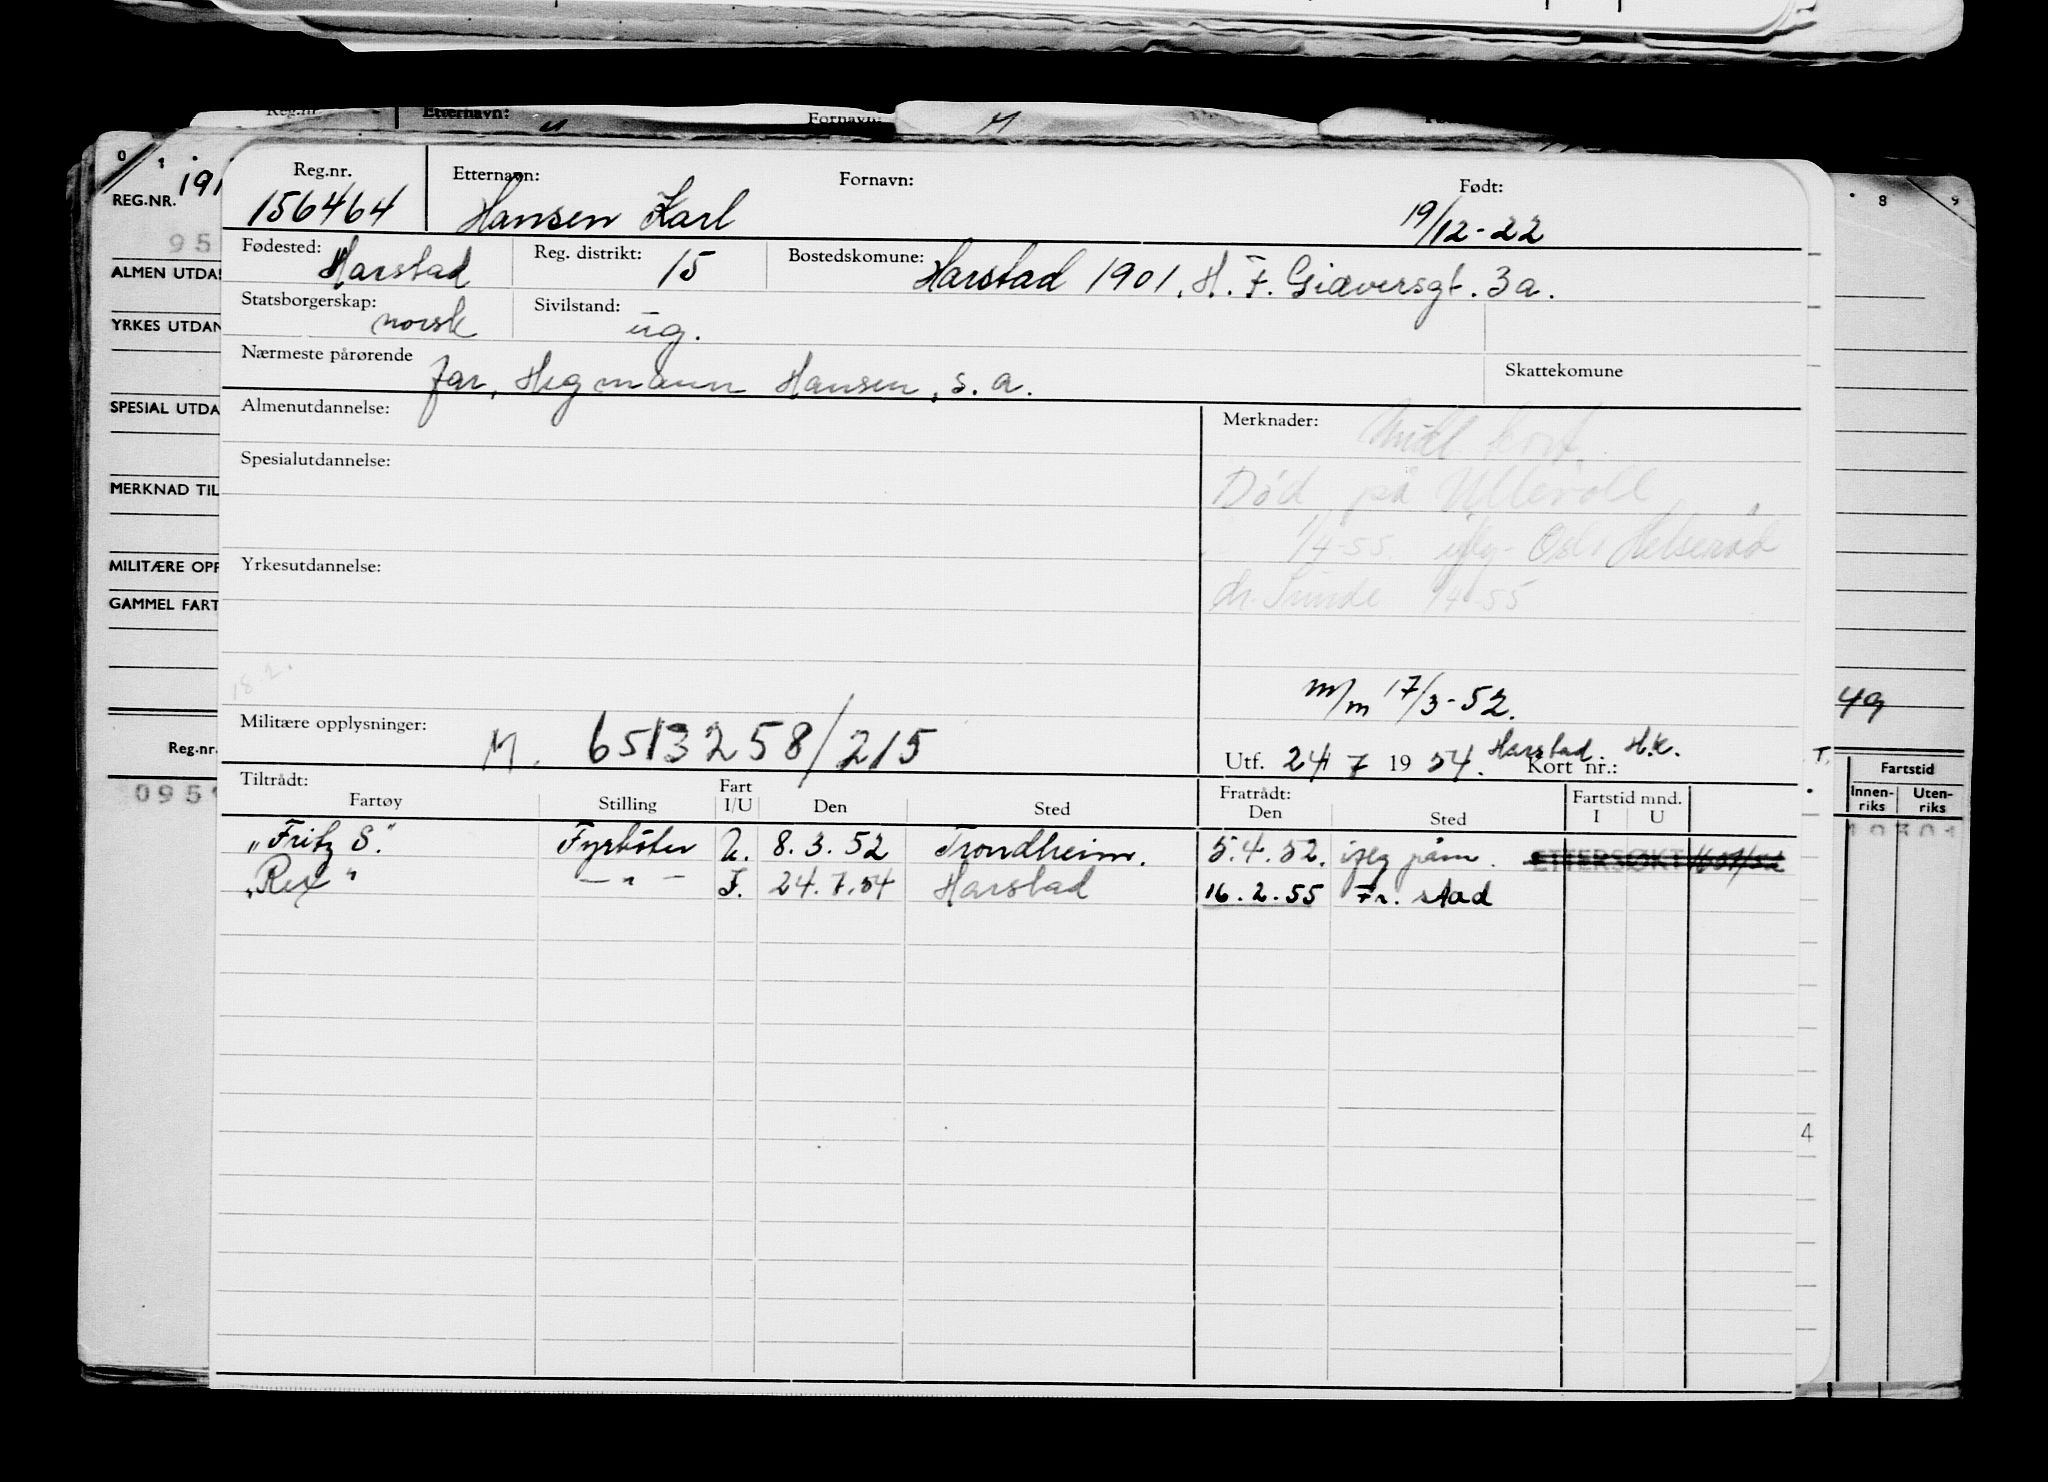 Reg.nr. Etternavn: Fornavn:
REG.NR. 191
ALMEN UTDA
YRKES UTDAN
SPESIAL UTDA
MERKNAD TIL
MILITÆRE OPP
GAMMEL FART
Reg.nr.
0951
Reg.nr. Etternavn: Fornavn: Født:
156464 Hansen Karl 19/12-22
Fødested: Harstad Reg. distrikt: 15 Bostedskomune: Harstad 1901. H. F. Giæversgt. 3a.
Statsborgerskap: norsk Sivilstand: ug.
Nærmeste pårørende far, Hansen, s.a. Skattekomune
Almenutdannelse: Merknader:
Spesialutdannelse: Død på Ullevoll
1/4-55 Helseråd
Yrkesutdannelse: dr. Sunde 1/4-55
18.2.
m/m 17/3-52.
Militære opplysninger: M. 6513258/215 Utf. 24 7 1954. Harstad. H.K. Kort nr.:
Tiltrådt: Fratrådt: Fartstid mnd.
Fartøy Stilling Fart I/U Den Sted Den Sted I U
"Fritz S." Fyrbøter U. 8.3.52 Trondheim. 5.4.52. ifleg påm. ETTERSØKT
"Rex" — " — I. 24.7.54 Harstad 16.2.55 Fr. stad
8 9
49
T.
Fartstid
Innen-riks Uten-riks
4